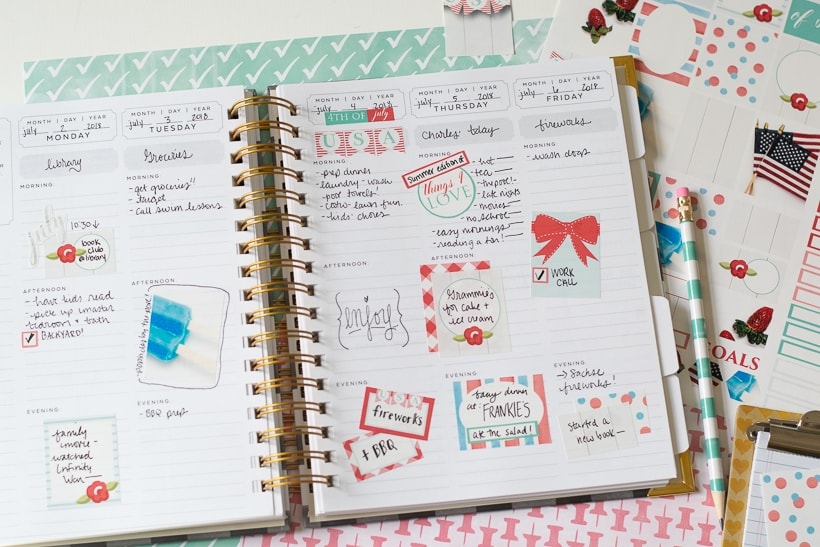 MONTH | DAY | YEAR
july 2 2018
MONDAY
library
MORNING
10:30 ↓
book
club
@library
AFTERNOON
- have kids read
- pick up master
bedroom + bath
BACKYARD!
EVENING
family
movie -
watched
Infinity
War
MONTH | DAY | YEAR
july 3 2018
TUESDAY
Groceries
MORNING
- get groceries
- target
- call swim lessons
AFTERNOON
EVENING
- BBQ prep
MONTH | DAY | YEAR
july 4 2018
4TH OF july
USA
MORNING
- prep dinner
- laundry - wash
pool towels
- kids: chores
AFTERNOON
enjoy
EVENING
USA
fireworks
+ BBQ
MONTH | DAY | YEAR
july 5 2018
THURSDAY
Charles' bday
MORNING
Summer edition of
things I
LOVE
- hot
- tea
- the pool!
- late nights
- movies
- no school
- easy mornings
- reading a ton!
AFTERNOON
Grammies
for cake +
ice cream
EVENING
bday dinner
at: FRANKIES
ate the salad!
MONTH | DAY | YEAR
july 6 2018
FRIDAY
fireworks
MORNING
- wash drops
WORK
CALL
EVENING
→ Sachse
fireworks!
started a
new book
GOALS